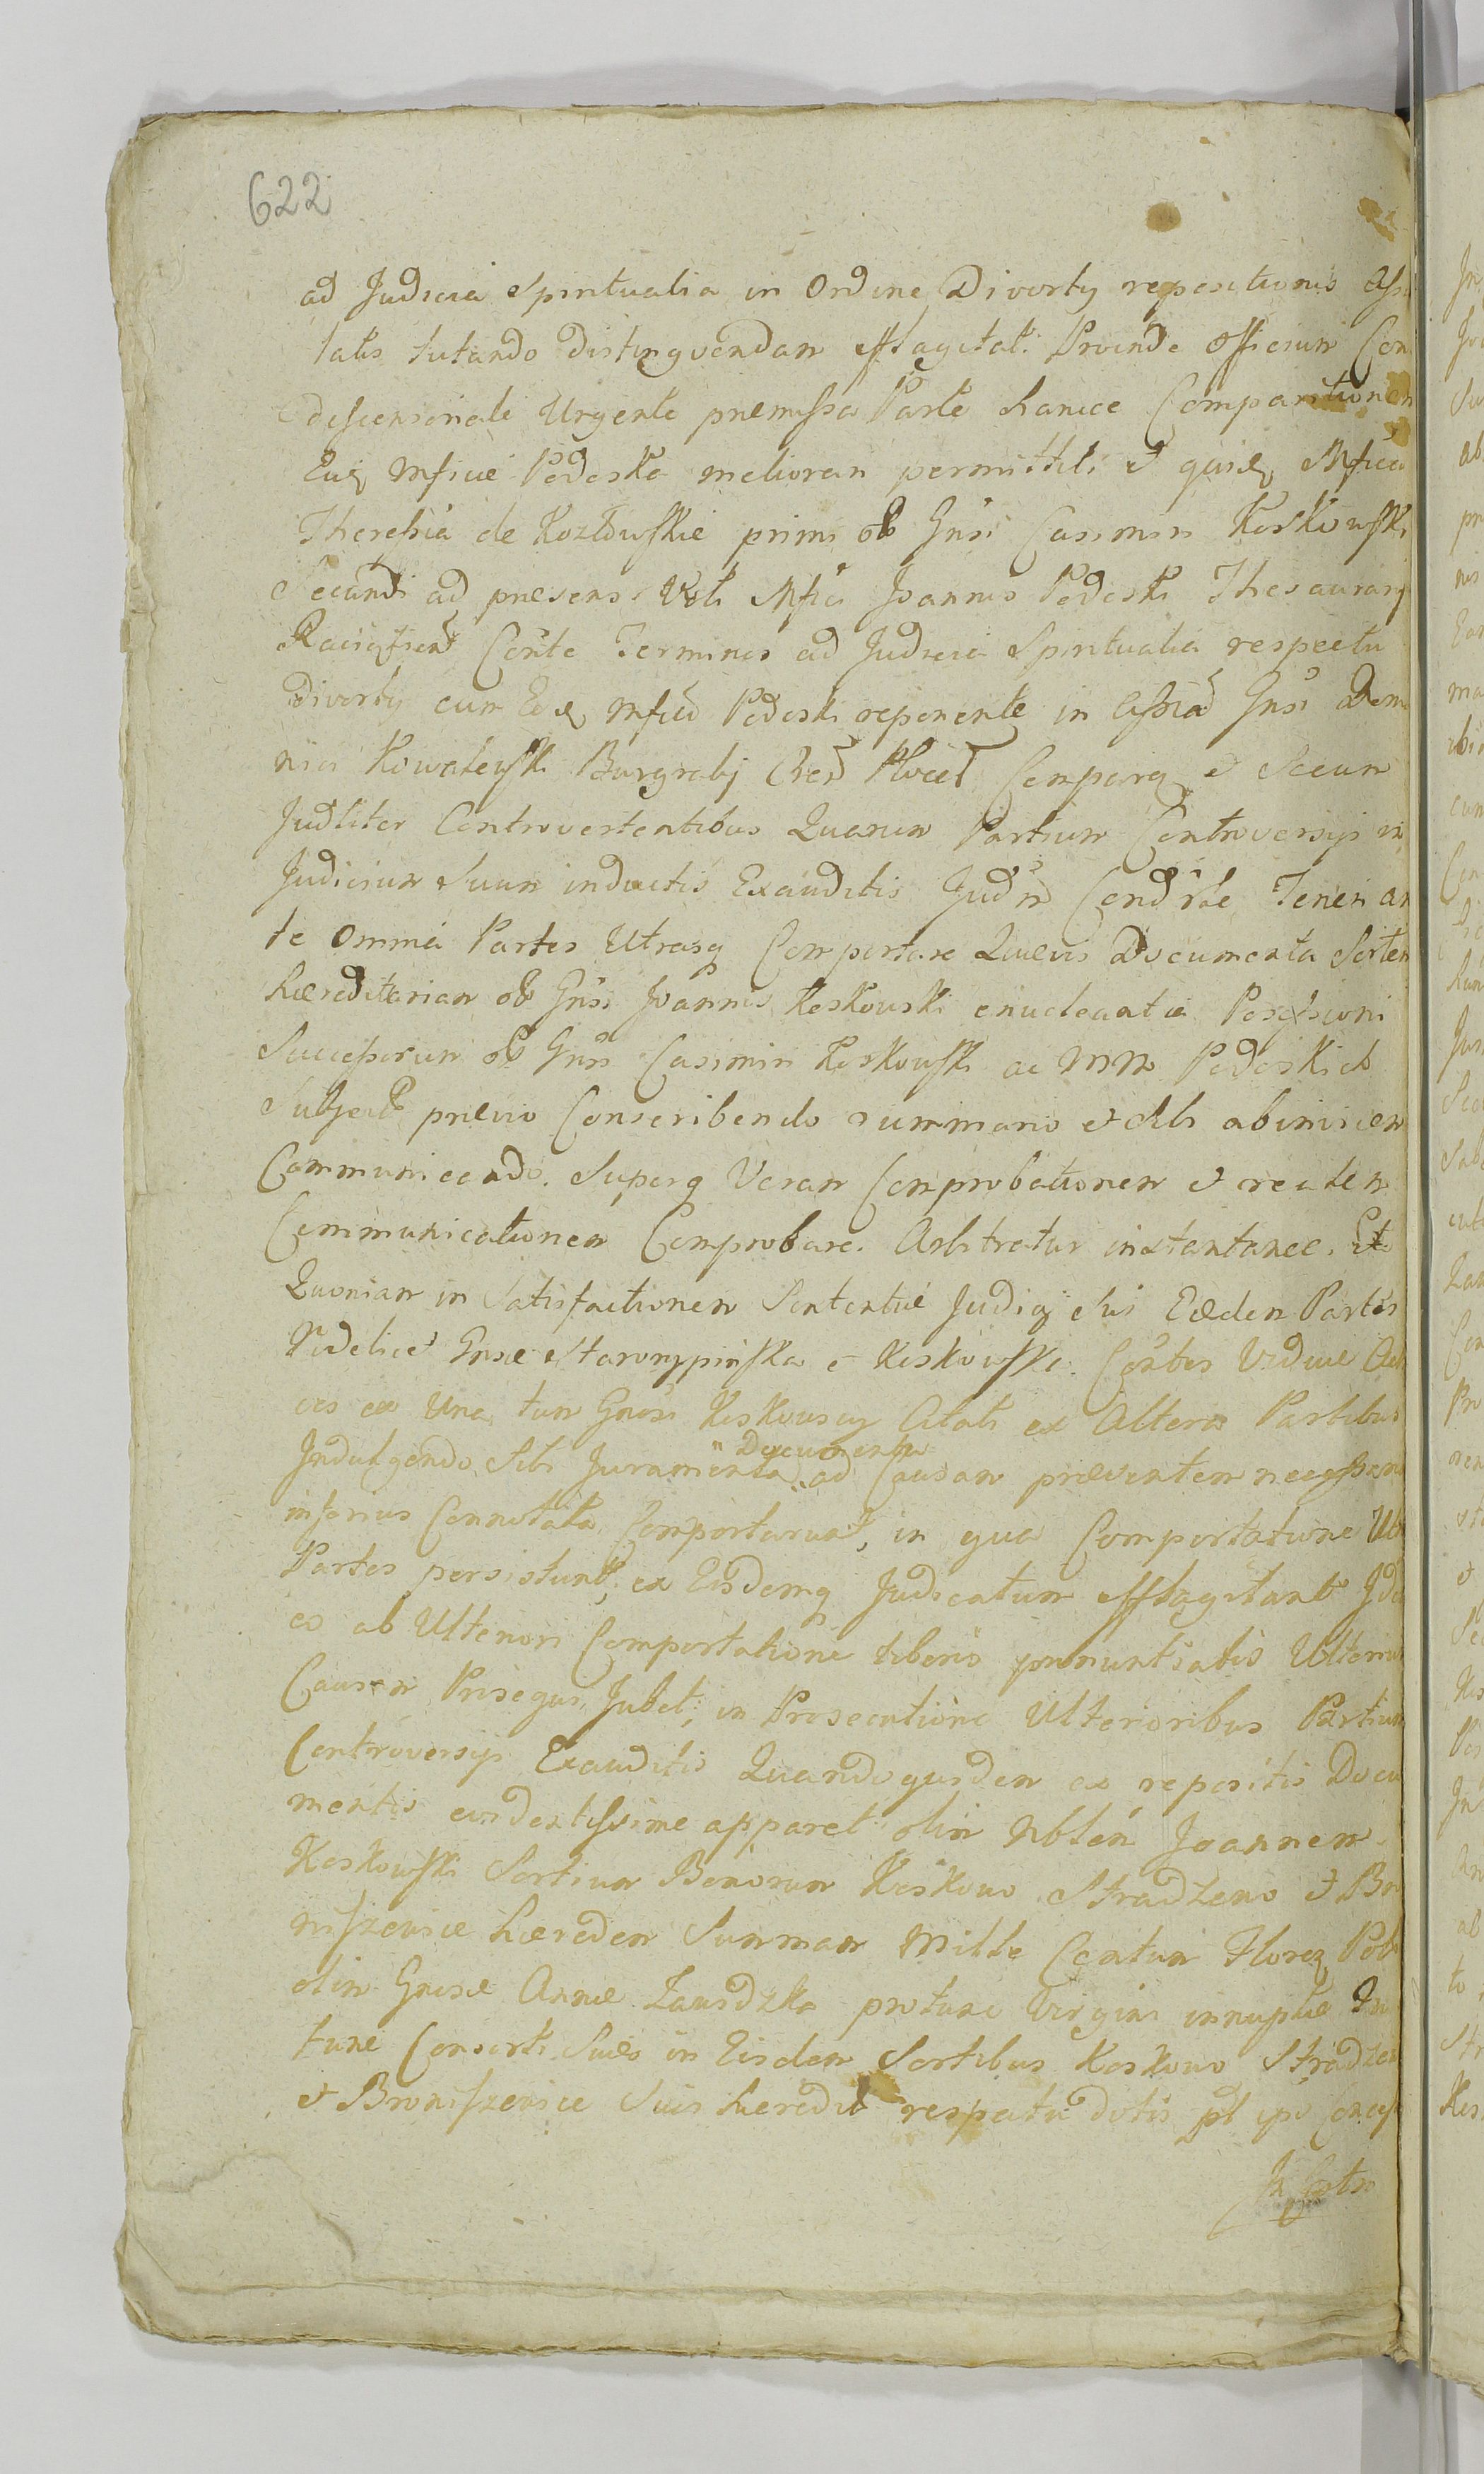 622
ad Judicia Spiritualia in Ordine Divortij repositionis
tatis tutando distingvendam efflagitat. Proinde Officium Con
descensionale Urgente præmissa Parte hancce Comparitionem
Eiusq Mficæ Podoska meliorari permittit: et
Theresia de Kozłowskie primi olb Gnsi Casimiri Koskowski
Secundi ad præsens Voti Mfici Joannis Podoski Thesaurarij
Conte Terminos ad Judicia Spiritualia respectu
Divortij cum Mfico Podoski reponente in Gnsi Domi
nici Kowalewski Burgrabij Plocen Comparen et Secum
Judliter Controvertentibus Quarum Partium Controversijs in
Judicium Suum inductis Exauditis Teneri an
te Omnia Partes Utrasq Comportare Quævis Documenta Sortem
hæreditariam olb Gnsi Joannis Koskowski enucleantia Possessioni
Successorum olb Gnsi Casimiri Koskowski ac MM Podoskich
Subject prævio Conscribendo Summario et Sibi abinvicem
Communicando. Superq Veram Comprobationem et realem
Communicationem Comprobare. Arbitratur instantanee. Et
Quoniam in Satisfactionem Sententiæ Judicij Sui Eædem Partes
Videlicet Gnsæ Starorypinska et Koskowska Viduæ Act
ces ex Una, tum Gnosi Koskowscy Citati ex Altera Partibus
Indulgendo Sibi Juramenta Documenta ad Causam præsentem necessaria
inferius Connotata Comportarunt, in qua Comportatione Utr
Partes persistunt, ex Eisdemq Judicatum efflagitant Ide
eo ab Ulteriori Comportatione liberis pronuntiatis Ulterius
Causam Prosequi Jubet; in Prosecutione Ulterioribus Partium
Controversijs Exauditis Quandoquidem ex repositis Docu
mentis evidentissime apparet olim Nblem Joannem
Koskowski Sortium Bonorum Koskowo Stradzewo et Bro
niszewice hæredem Summam Mille Centum Florenq Pol
olim Gnosæ Annæ Zawidzka protunc Virgini innuptæ In
tunc Consorti Suæ in Eisdem Sortibus Koskowo Stradzew
et Broniszewice Suis hæredit respectu dotis pt ipso